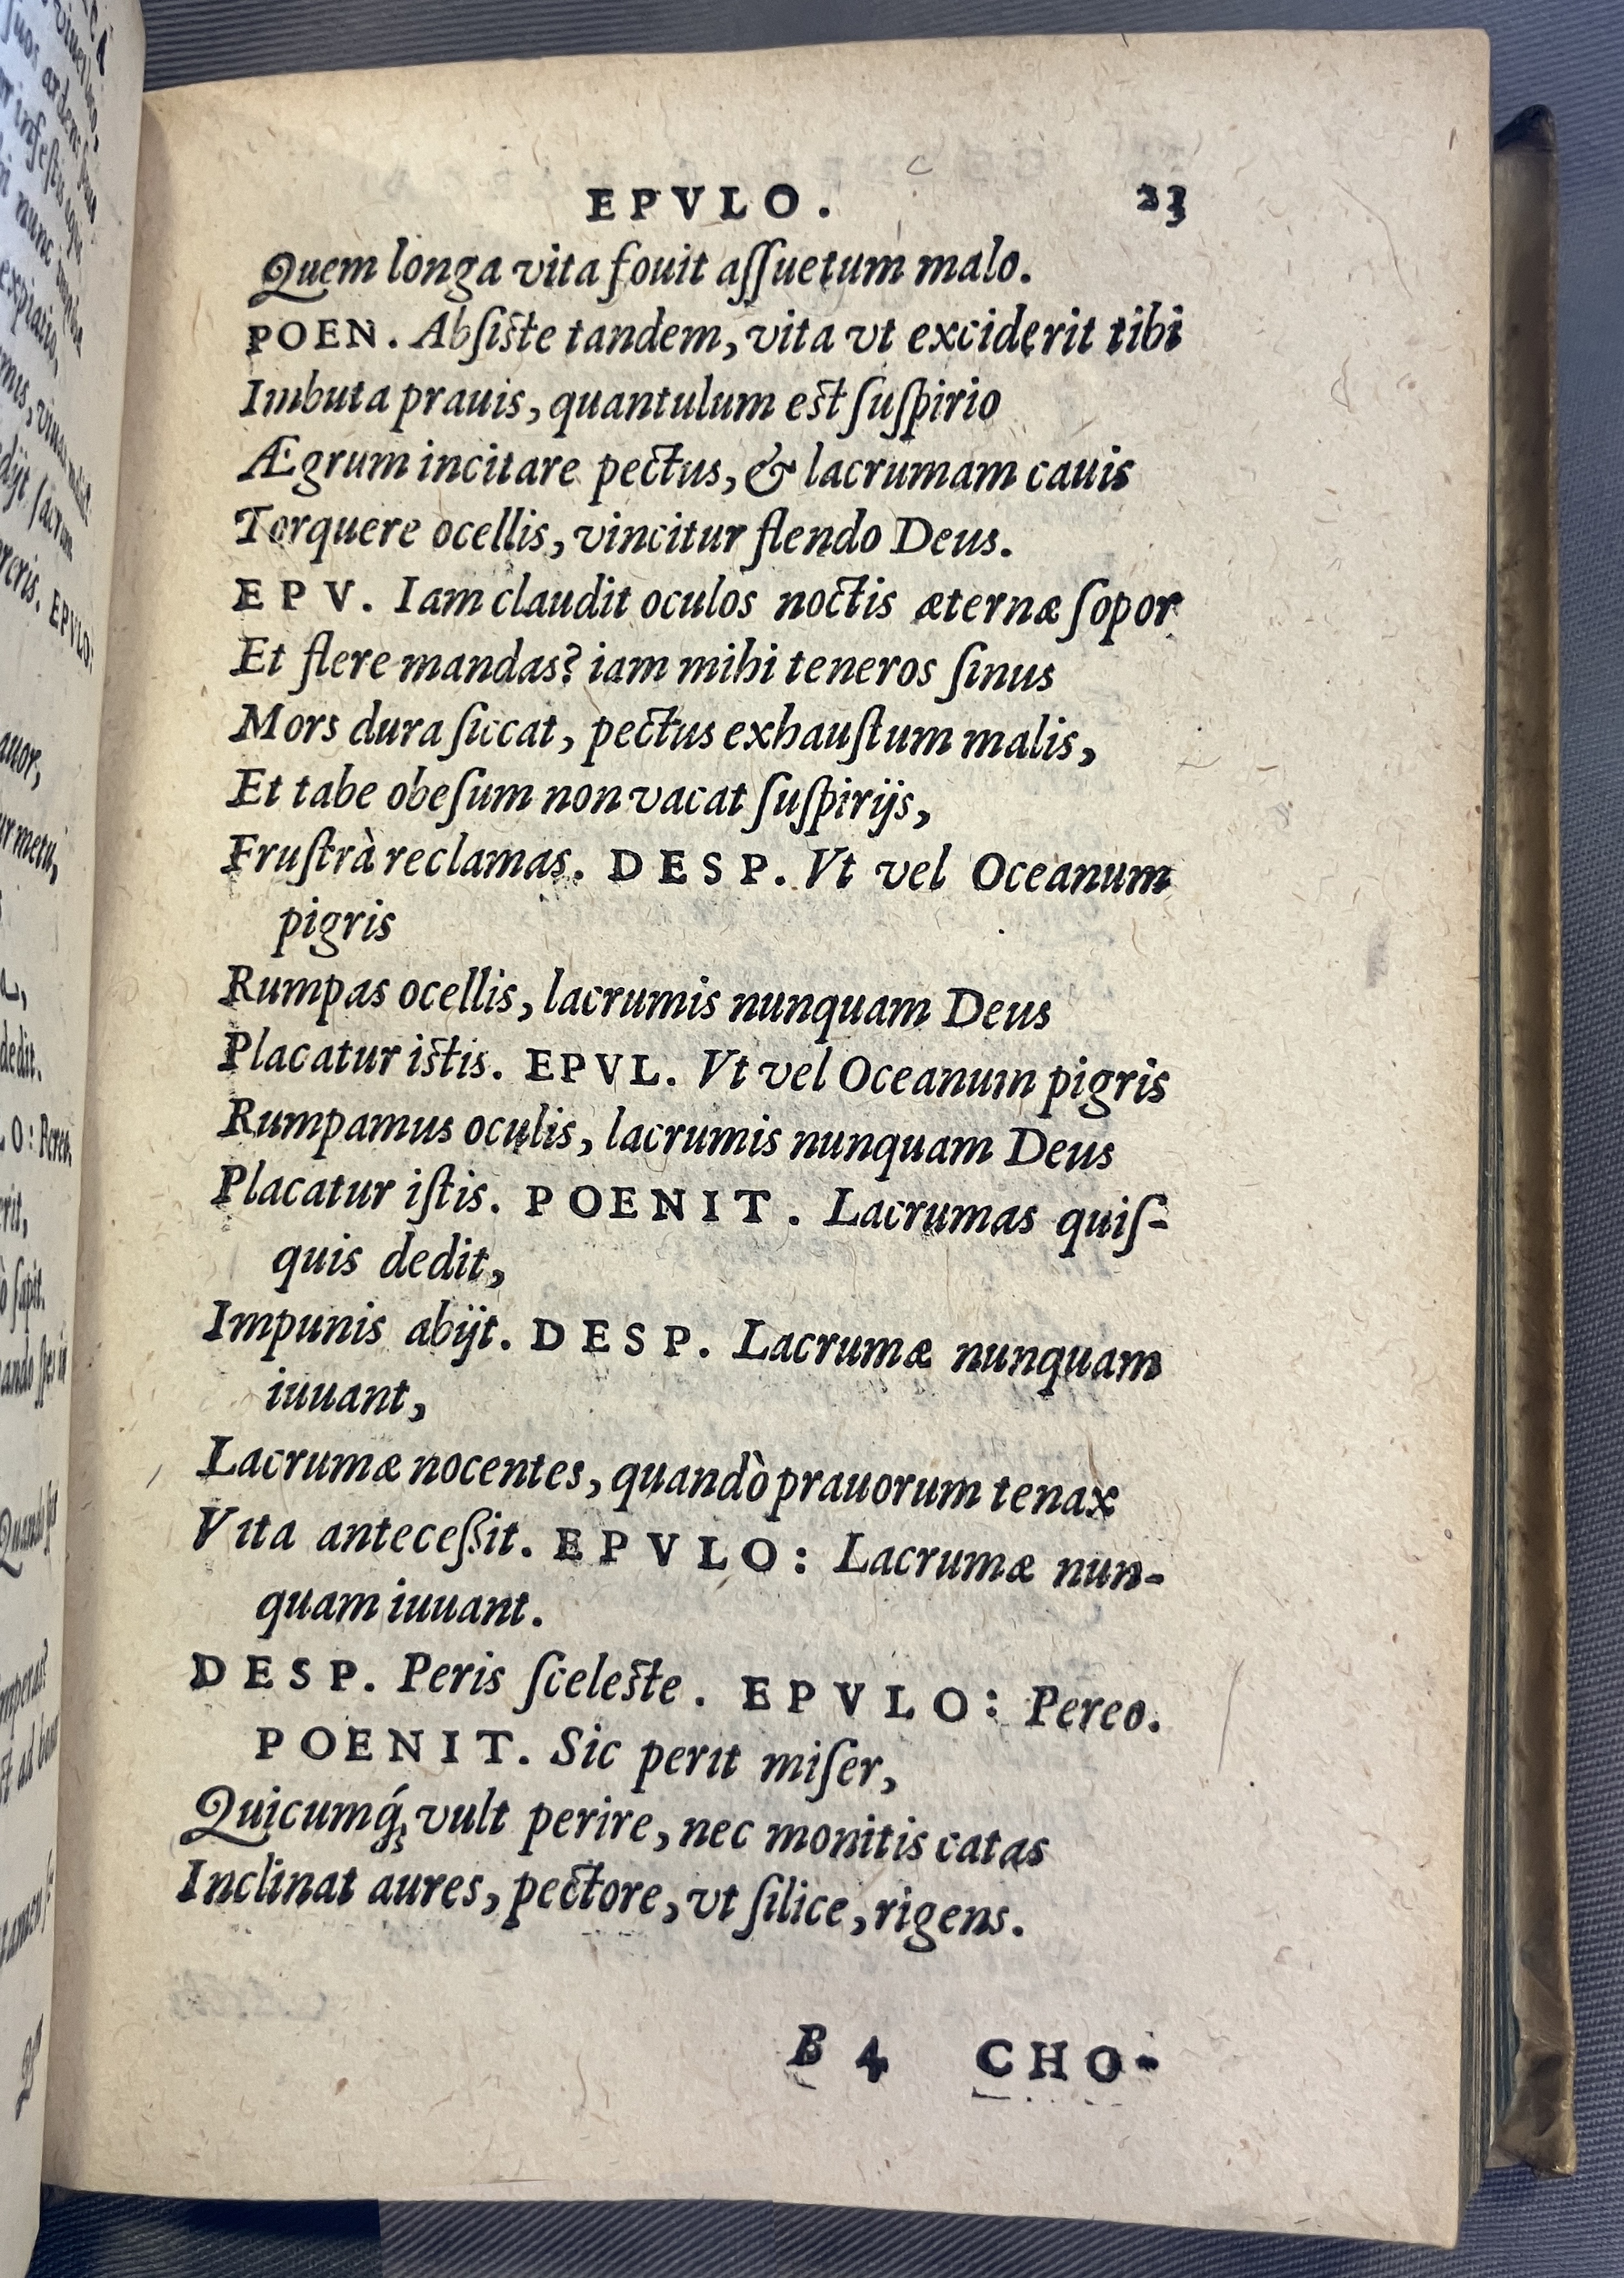 EPVLO. 23
Quem longa vita fouit aſſuetum malo.
POEN. Abſiſte tandem, vita vt exciderit tibi
Imbuta prauis, quantulum eſt ſuſpirio
Ægrum incitare pectus, & lacrumam cauis
Torquere ocellis, vincitur flendo Deus.
EPV. Iam claudit oculos noctis æternæ ſopor
Et flere mandas? iam mihi teneros ſinus
Mors dura ſiccat, pectus exhauſtum malis,
Et tabe obeſum non vacat ſuſpirijs,
Fruſtrà reclamas. DESP. Vt vel Oceanum
pigris
Rumpas ocellis, lacrumis nunquam Deus
Placatur iſtis. EPVL. Vt vel Oceanum pigris
Rumpamus oculis, lacrumis nunquam Deus
Placatur iſtis. POENIT. Lacrumas quiſ-
quis dedit,
Impunis abijt. DESP. Lacrumæ nunquam
iuuant,
Lacrumæ nocentes, quandò prauorum tenax
Vita anteceßit. EPVLO: Lacrumæ nun-
quam iuuant.
DESP. Peris ſceleſte. EPVLO: Pereo.
POENIT. Sic perit miſer,
Quicumq́; vult perire, nec monitis catas
Inclinat aures, pectore, vt ſilice, rigens.
B 4 CHO-